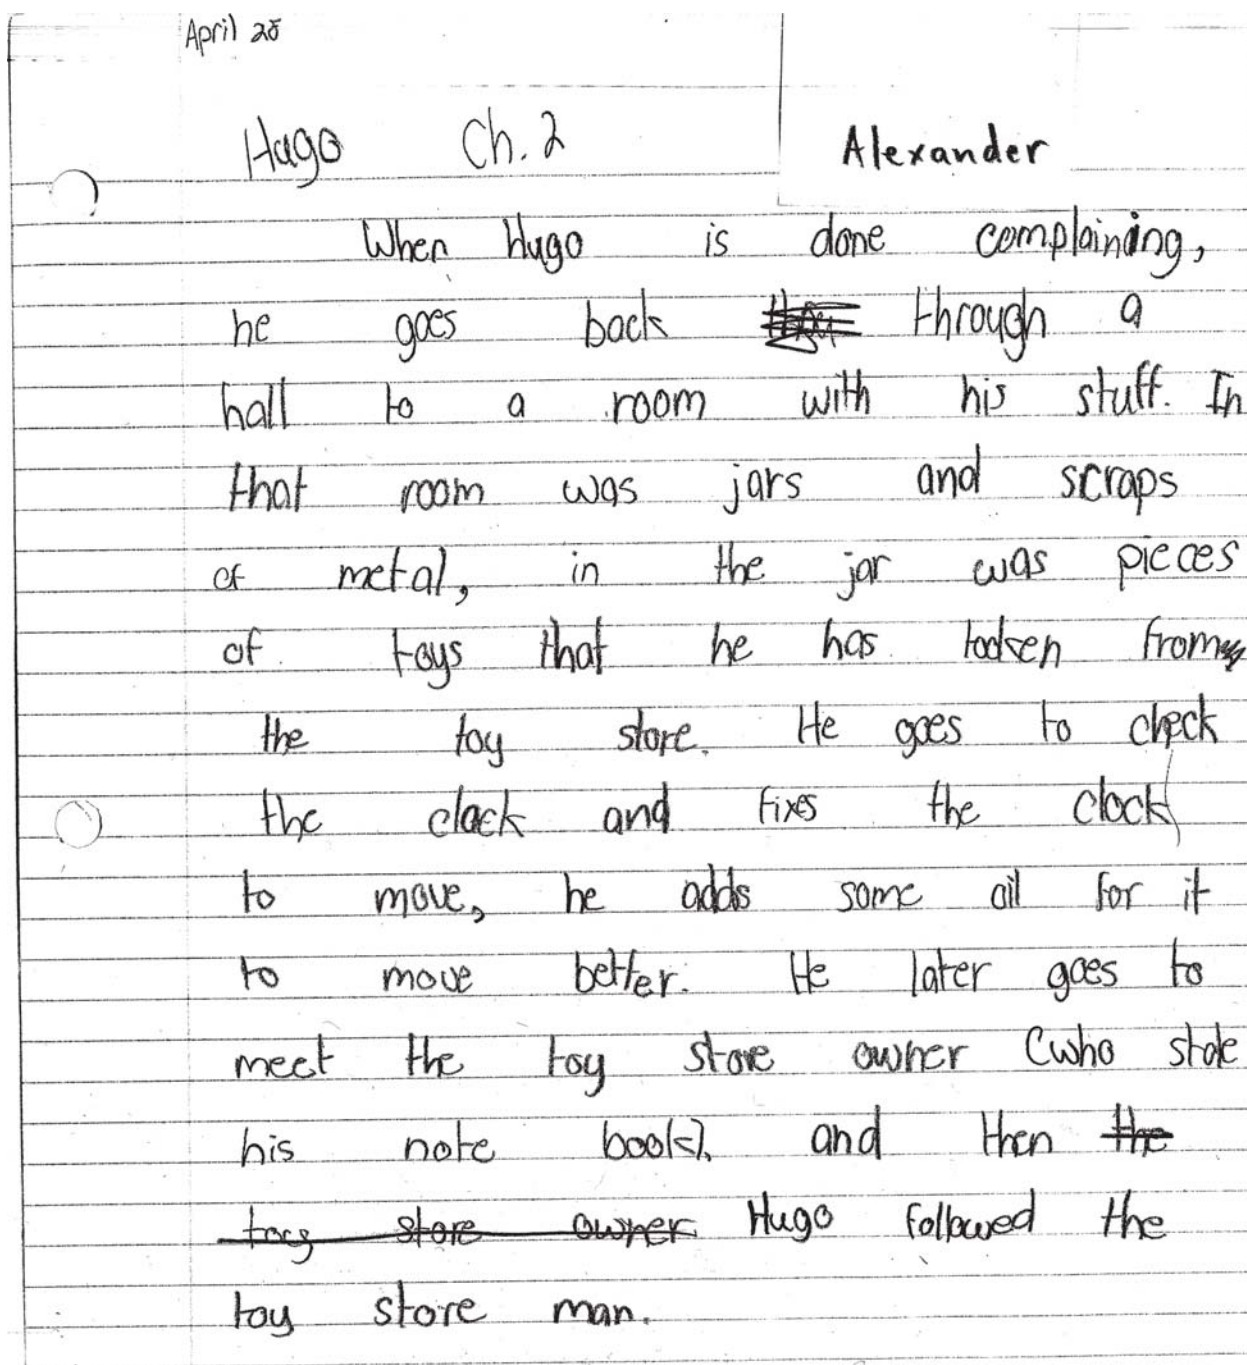 April 28
Hugo Ch. 2 Alexander
When Hugo is done complaining,
he goes back through a
hall to a room with his stuff. In
that room was jars and scraps
of metal, in the jar was pieces
of toys that he has tooken from
the toy store. He goes to check
the clock and fixes the clock
to move, he adds some oil for it
to move better. He later goes to
meet the toy store owner (who stole
his note book), and then the
toy store owner Hugo followed the
toy store man.